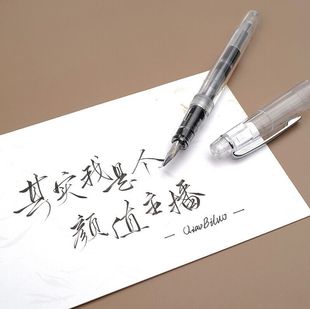 其实我是个
颜值主播
— QiaoBiluo —